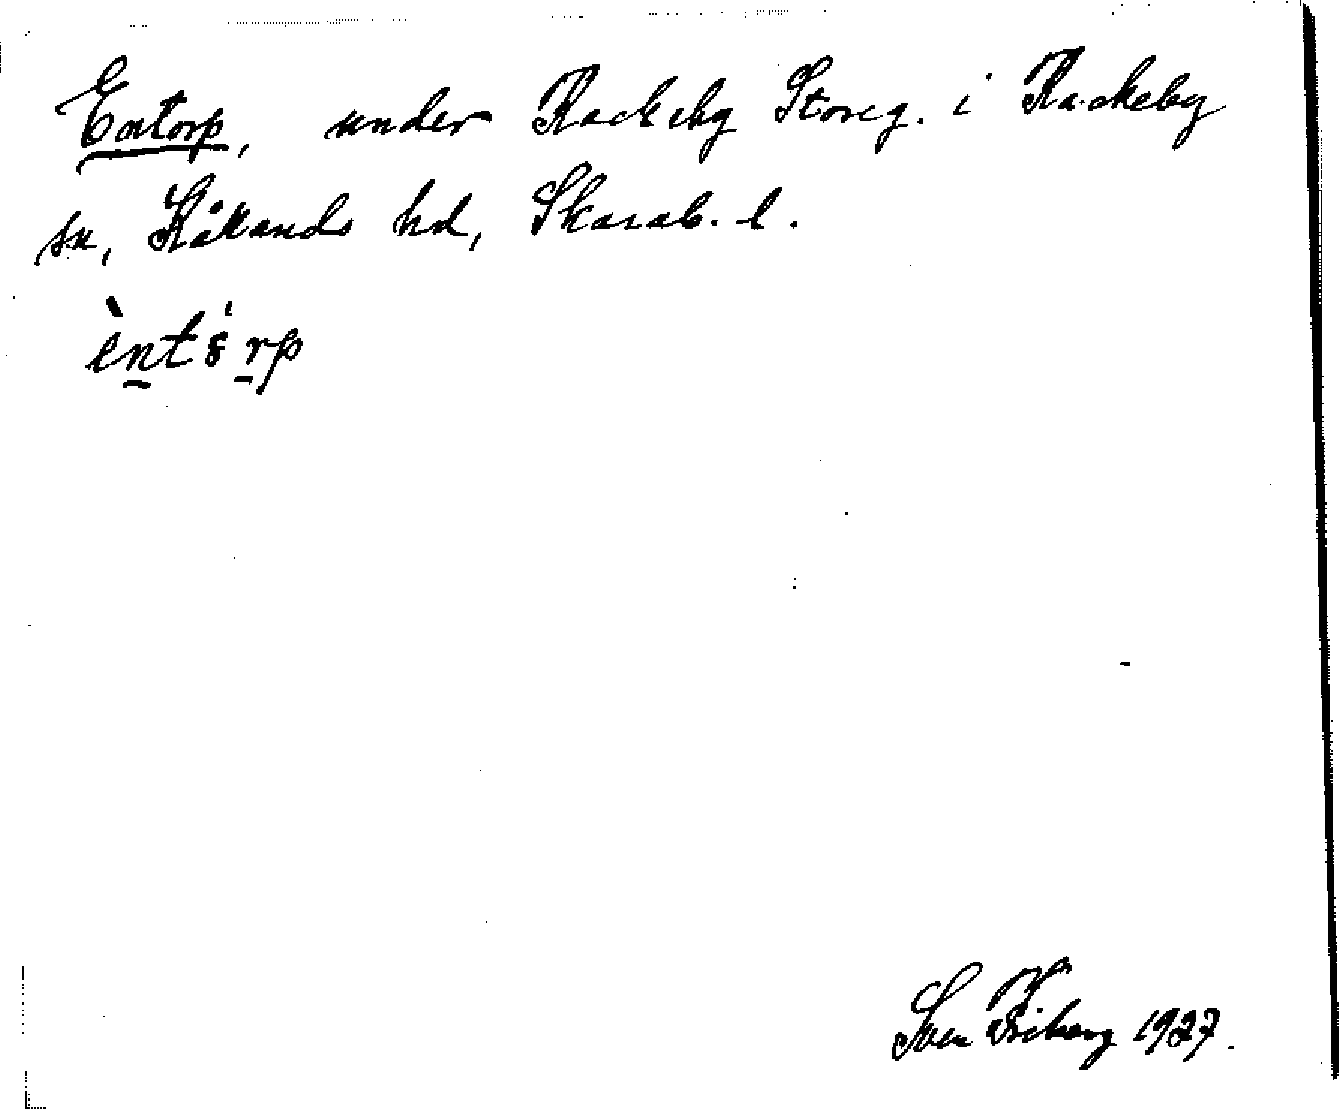 Entorp, under Rackeby Storeg. i Rackeby
sn, Kållands hd, Skarab. l.
Sven Friberg 1927.